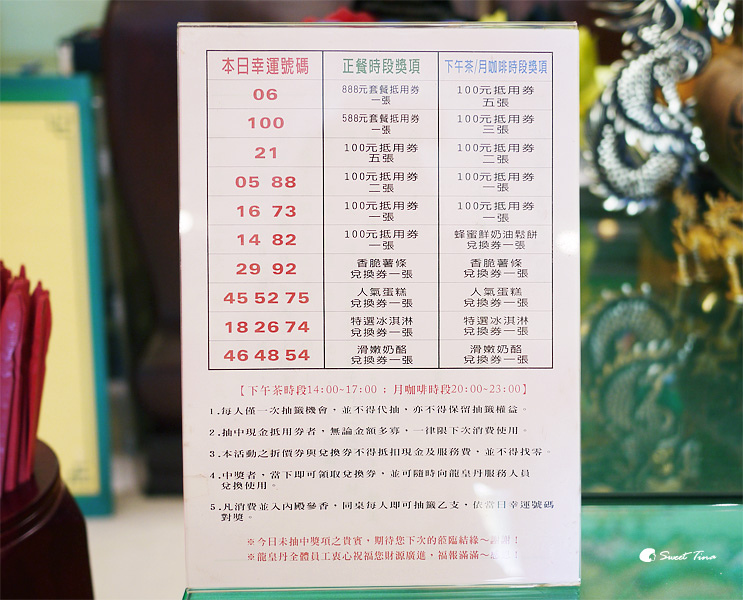 本日幸運號碼 正餐時段獎項 下午茶/月咖啡時段獎項
06 888元套餐抵用券 一張 100元抵用券 五張
100 588元套餐抵用券 一張 100元抵用券 三張
21 100元抵用券 五張 100元抵用券 二張
05 88 100元抵用券 二張 100元抵用券 一張
16 73 100元抵用券 一張 100元抵用券 一張
14 82 100元抵用券 一張 蜂蜜鮮奶油鬆餅 兌換券一張
29 92 香脆薯條 兌換券一張 香脆薯條 兌換券一張
45 52 75 人氣蛋糕 兌換券一張 人氣蛋糕 兌換券一張
18 26 74 特選冰淇淋 兌換券一張 特選冰淇淋 兌換券一張
46 48 54 滑嫩奶酪 兌換券一張 滑嫩奶酪 兌換券一張
【下午茶時段14:00~17:00 ; 月咖啡時段20:00~23:00】
1.每人僅一次抽籤機會，並不得代抽，亦不得保留抽籤權益。
2.抽中現金抵用券者，無論金額多寡，一律限下次消費使用。
3.本活動之折價券與兌換券不得抵扣現金及服務費，並不得找零。
4.中獎者，當下即可領取兌換券，並可隨時向龍皇丹服務人員
兌換使用。
5.凡消費並入內殿參香，同桌每人即可抽籤乙支，依當日幸運號碼
對獎。
※今日未抽中獎項之貴賓，期待您下次的蒞臨結緣～謝謝！
※龍皇丹全體員工衷心祝福您財源廣進，福報滿滿～！
Sweet Tina